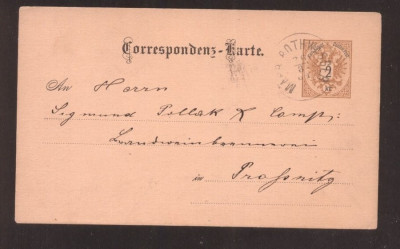 Correspondenz-Karte.
2
An Herrn
Sigmund Pollak & Comp:
Landweinbrennerei
in Prossnitz